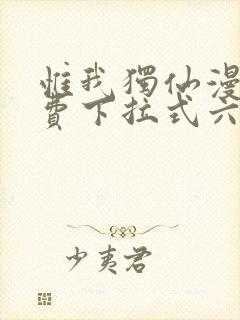 惟我獨仙漫
費下拉式六
少夷君